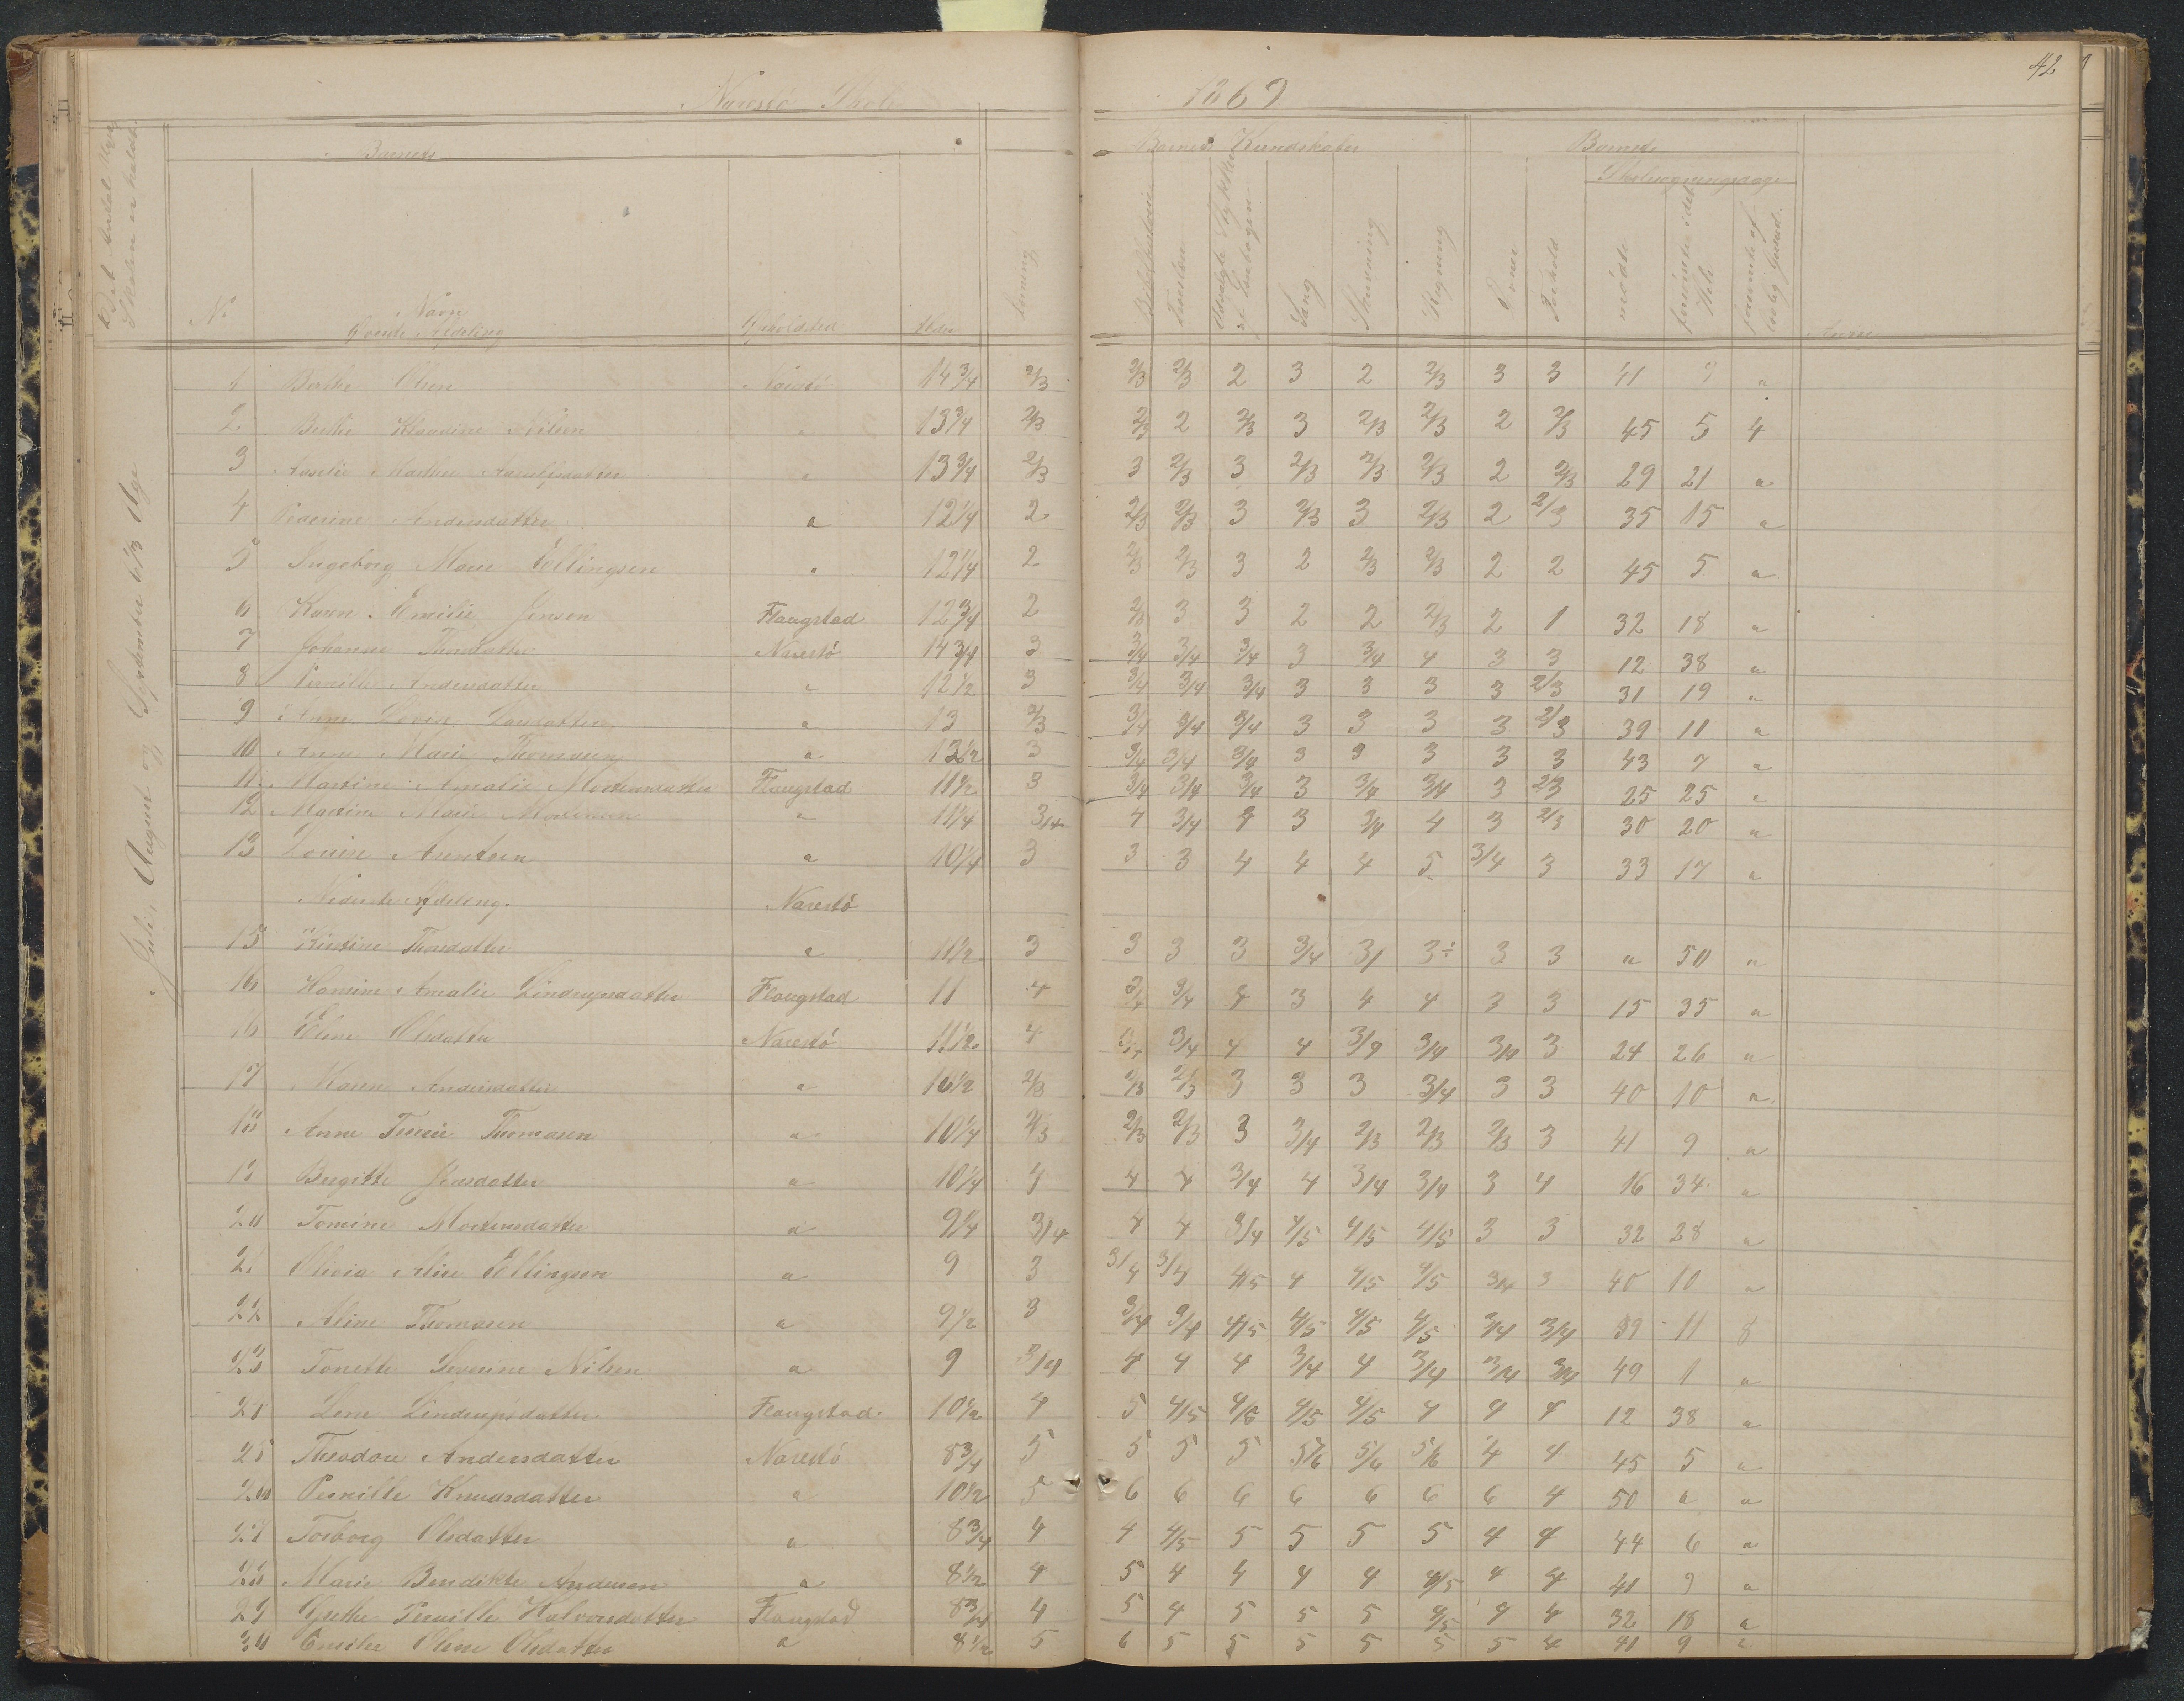 Narestø Skole 1869. 42
Det Antal Uger Skolen er holdt.
Juli, August og September 6 1/3 Uge
Barnets Barnets Kundskaber Barnets
Skolesøgningsdage
No Navn Opholdsted Alder Læsning Bibelhistorie Troeslære Udvalgte Stykker af Læsebogen Sang Skrivning Regning Evner Forhold mødte forsømte i det Hele forsømte af lovlig Grund Anm
Øverste Afdeling
1 Berthe Olsen Narestø 14 3/4 2/3 2/3 2/3 2 3 2 2/3 3 3 41 9 "
2 Berthe Klaudine Nilsen " 13 3/4 2/3 2/3 2 2/3 3 2/3 2/3 2 2/3 45 5 4
3 " 13 3/4 2/3 3 2/3 3 2/3 2/3 2/3 2 2/3 29 21 "
4 Pederine Andersdatter " 12 1/4 2 2/3 2/3 3 2/3 3 2/3 2 2/3 35 15 "
5 Ingeborg Marie Ellingsen " 12 1/4 2 2/3 2/3 3 2 2/3 2/3 2 2 45 5 "
6 Karen Emilie Jensen Flangstad 12 3/4 2 2/3 3 3 2 2 2/3 2 1 32 18 "
7 Johanne Thorsdatter Narestø 14 3/4 3 3/4 3/4 3/4 3 3/4 4 3 3 12 38 "
8 Pernille Andersdatter " 12 1/2 3 3/4 3/4 3/4 3 3 3 3 2/3 31 19 "
9 Anne Lovise Larsdatter " 13 2/3 3/4 3/4 3/4 3 3 3 3 2/3 39 11 "
10 Anne Marie Thomasen " 13 1/2 3 3/4 3/4 3/4 3 3 3 3 3 43 7 "
11 Martine Amalie Mortensdatter Flangstad 11 1/2 3 3/4 3/4 3/4 3 3/4 3/4 3 2/3 25 25 "
12 Martine Marie " 11 1/4 3/4 4 3/4 4 3 3/4 4 3 2/3 30 20 "
13 Lovise Arntsen " 10 1/4 3 3 3 4 4 4 5 3/4 3 33 17 "
Nederste Afdeling. Narestø
15 Kirstine Thorsdatter " 11 1/2 3 3 3 3 3/4 3/ 3÷ 3 3 " 50 "
16 Hansine Amalie Lindrupsdatter Flangstad 11 4 3/4 3/4 4 3 4 4 3 3 15 35 "
16 Eline Olsdatter Narestø 11 1/2 4 3/4 3/4 4 4 3/4 3/4 3/4 3 24 26 "
17 Maren Andersdatter " 10 1/2 2/3 2/3 2/3 3 3 3 3/4 3 3 40 10 "
18 Anne Thomasen " 10 1/4 2/3 2/3 2/3 3 3/4 2/3 2/3 2/3 3 41 9 "
19 Birgitte Jensdatter " 10 1/4 4 4 4 3/4 4 3/4 3/4 3 4 16 34 "
20 Tomine Mortensdatter " 9 1/4 3/4 4 4 3/4 4/5 4/5 4/5 3 3 32 28 "
21 Olivia Elise Ellingsen " 9 3 3/4 3/4 4/5 4 4/5 4/5 3/4 3 40 10 "
22 Aline Thomasen " 9 1/2 3 3/4 3/4 4/5 4/5 4/5 4/5 3/4 3/4 39 11 8
23 Tonette Severine Nilsen " 9 3/4 4 4 4 3/4 4 3/4 3/4 3/4 49 1 "
24 Lene Lindrupsdatter Flangstad 10 1/2 4 5 4/5 4/5 4/5 4/5 4 4 4 12 38 "
25 Theodore Andersdatter Narestø 8 3/4 5 5 5 5 5/6 5/6 5/6 4 4 45 5 "
26 Pernille Knudsdatter " 10 1/2 5 6 6 6 6 6 6 6 4 50 " "
27 Torborg Olsdatter " 8 3/4 4 4 4/5 5 5 5 5 4 4 44 6 "
28 Marie Bendikte Andersen " 8 1/2 4 5 4 4 4 4 4/5 4 4 41 9 "
29 Grethe Pernille Halvorsdatter Flangstad 8 3/4 4 5 4 5 5 5 4/5 4 4 32 18 "
30 Emilie Olene Olsdatter " 8 1/2 5 6 5 5 5 5 5 5 4 41 9 "